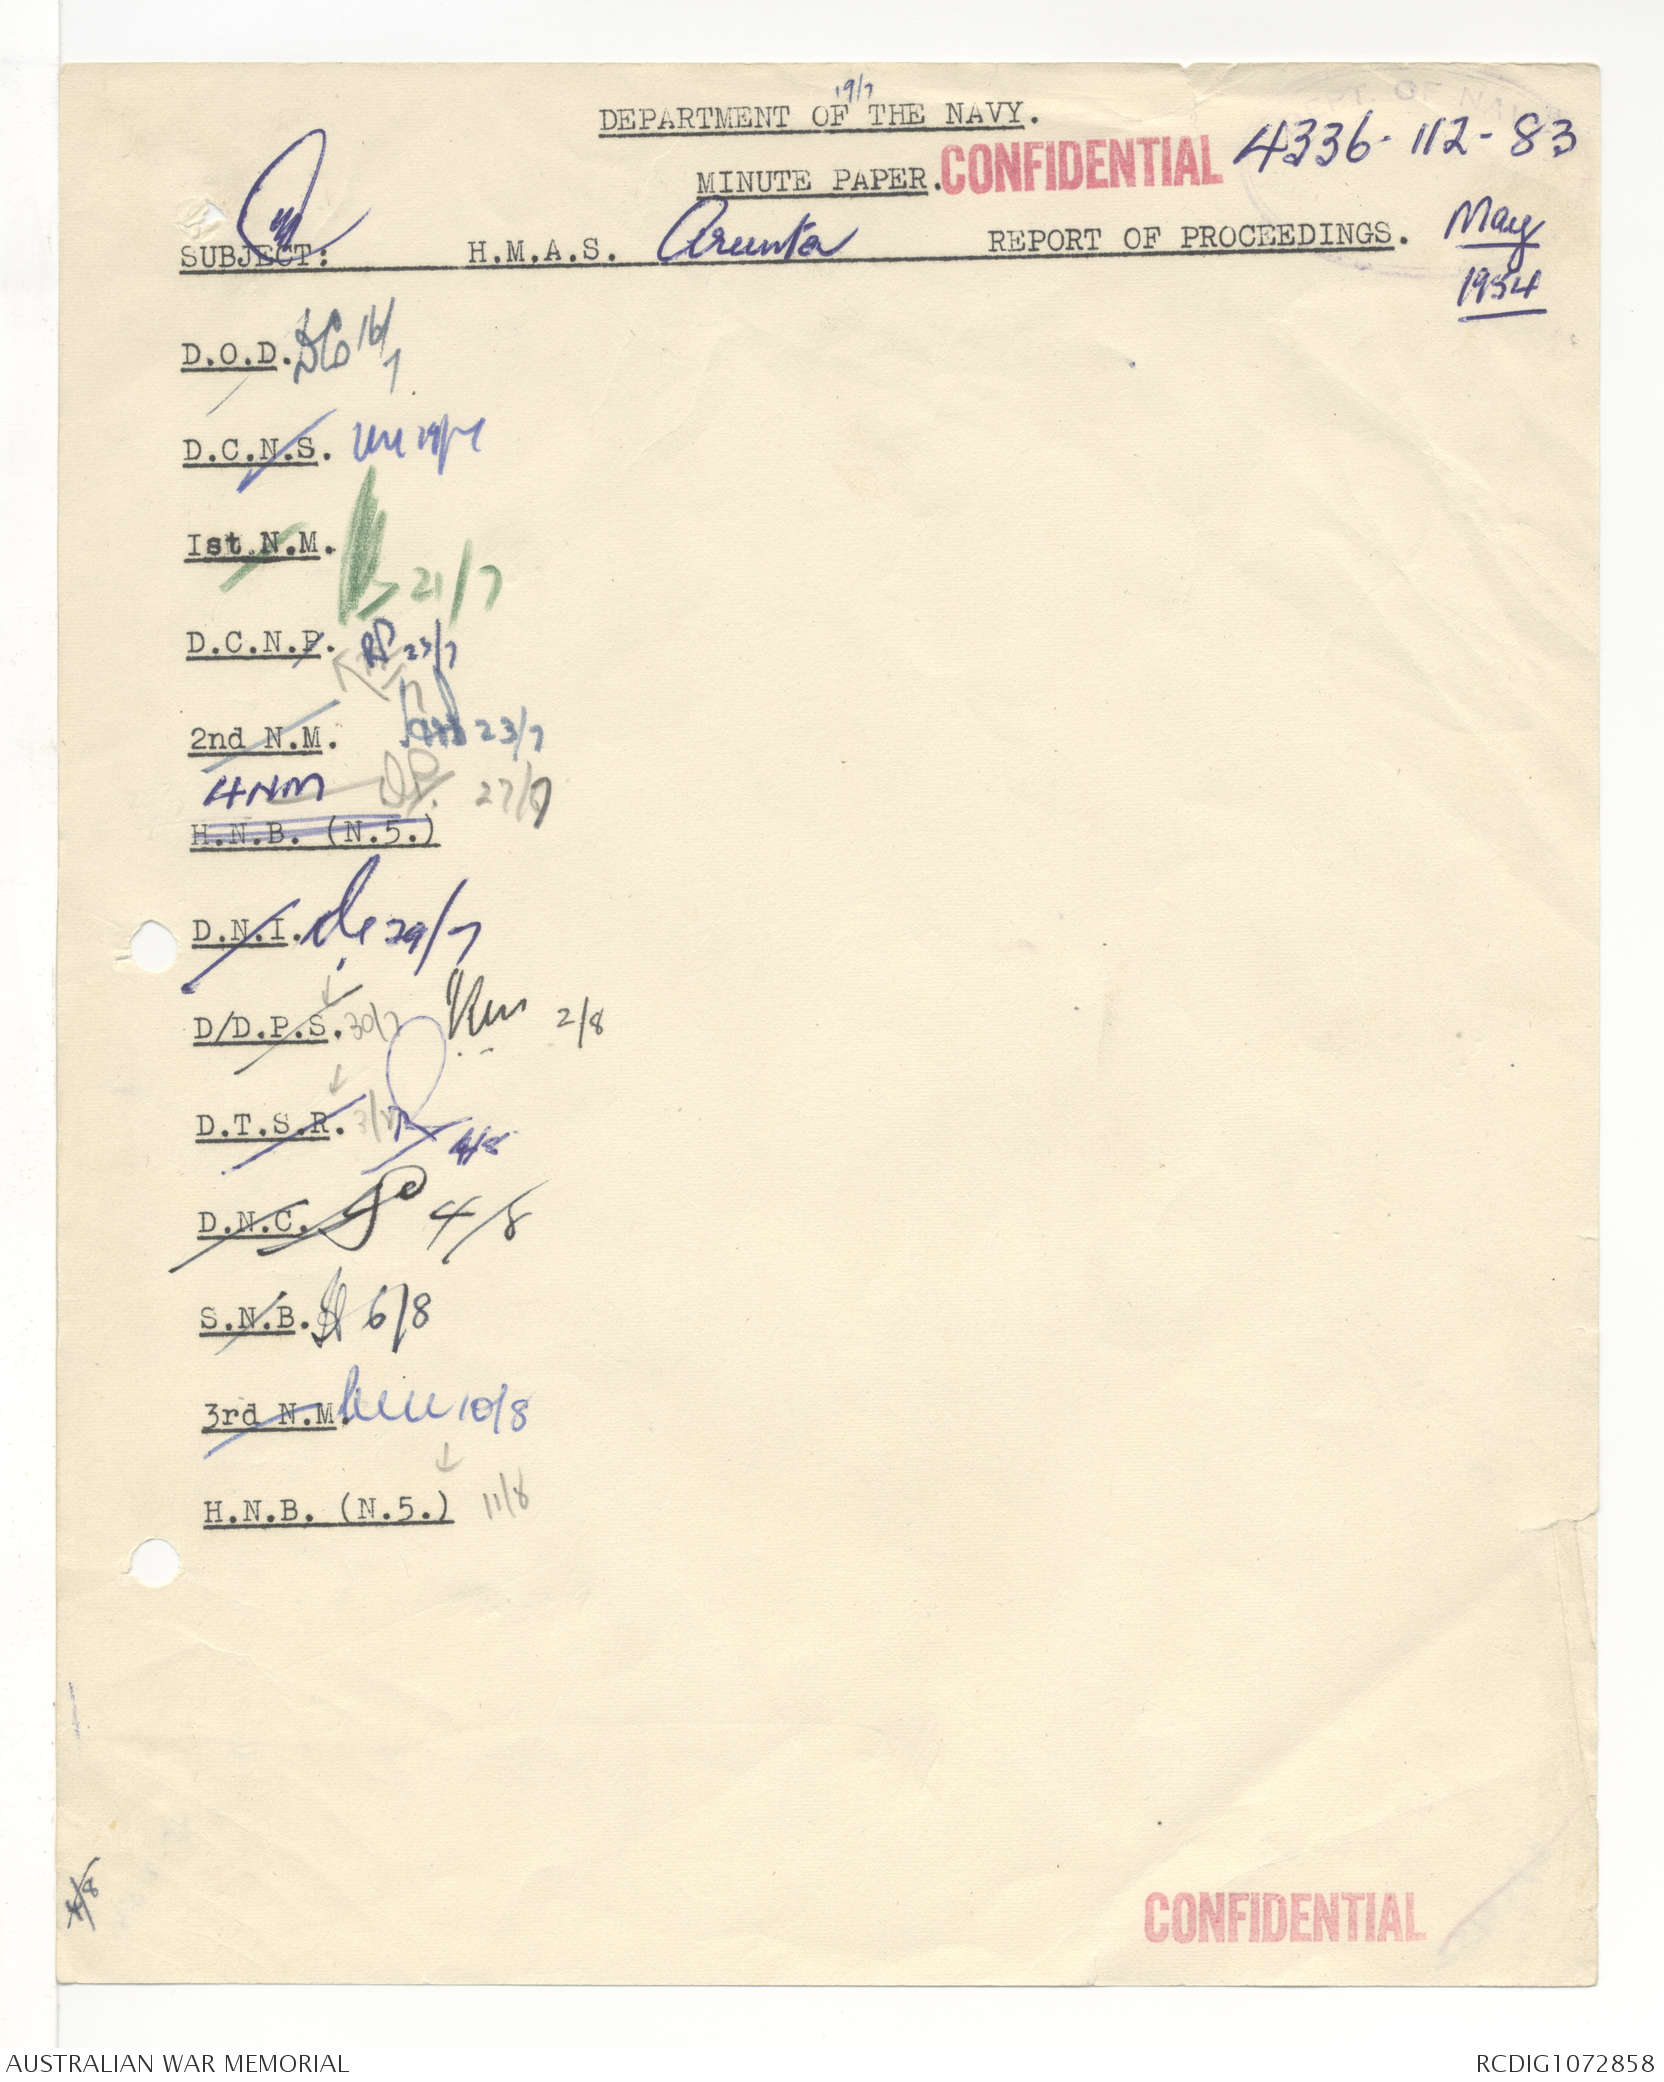 19/7
DEPARTMENT OF THE NAVY.
MINUTE PAPER. CONFIDENTIAL 4336-112-83
SUBJECT: H.M.A.S. Arunta REPORT OF PROCEEDINGS. May
1954
D.O.D. 16/7
D.C.N.S.
1st.N.M. 21/7
D.C.N.P. 23/7
2nd N.M. 23/7
4NM 27/7
H.N.B. (N.5.)
D.N.I. 29/7
D/D.P.S. 30/7 2/8
D.T.S.R. 3/8 4/8
D.N.C. 4/8
S.N.B. 6/8
3rd N.M. 10/8
H.N.B. (N.5.) 11/8
CONFIDENTIAL
AUSTRALIAN WAR MEMORIAL RCDIG1072858